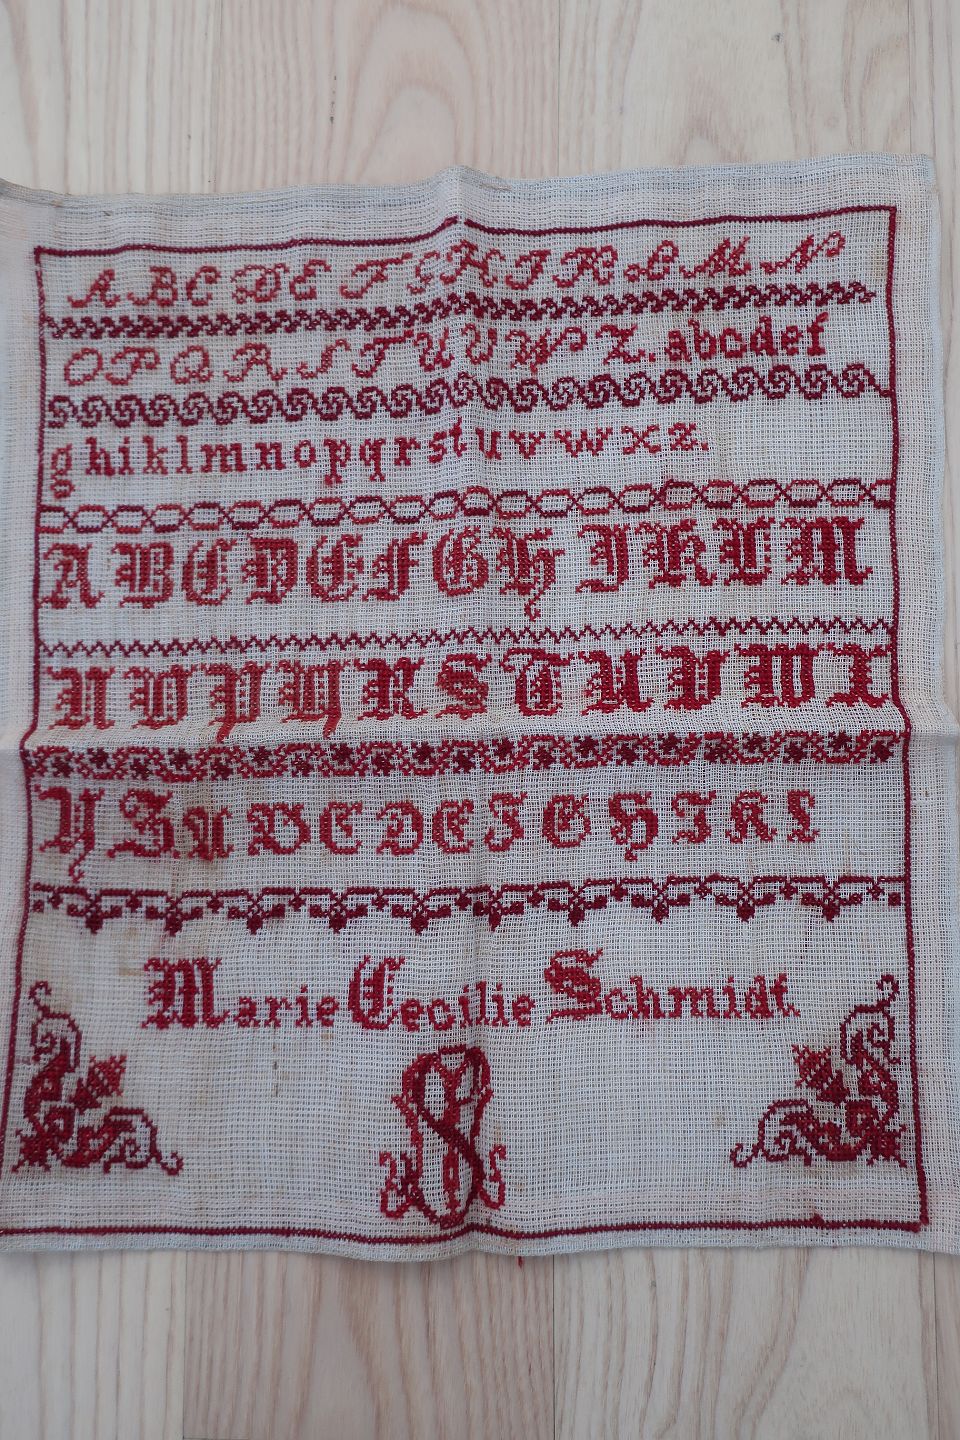 A B C D E F G H I K L M N
O P Q R S T U V W Z. a b c d e f
g h i k l m n o p q r s t u v w x z.
A B C D E F G H I K L M
N O P Q R S T U V W X
Y Z. A B C D E F G H I K L
Marie Cecilie Schmidt